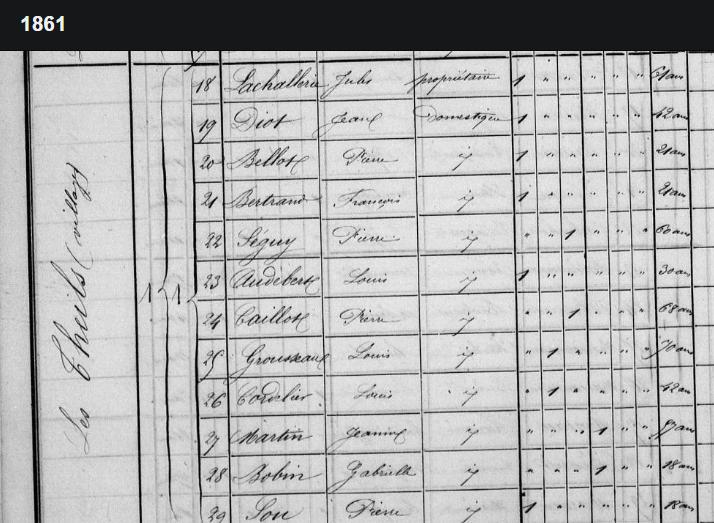 1861
Les Thuils (village)
1 1
18 Lachallerie Jules propriétaire 1 " " " " " 51 ans
19 Diot Jean Domestique 1 " " " " " 42 ans
20 Bellot Pierre id 1 " " " " " 21 ans
21 Bertrand François id 1 " " " " " 21 ans
22 Séguy Pierre id " " 1 " " " 60 ans
23 Audebert Louis id 1 " " " " " 30 ans
24 Caillot Pierre id " " 1 " " " 68 ans
25 Grousseau Louis id " 1 " " " " 70 ans
26 Cordelier Louis id " 1 " " " " 42 ans
27 Martin Jeanne id " " " 1 " " ans
28 Bobin Gabrielle id " " " 1 " " 18 ans
29 Son Pierre id 1 " " " " " 18 ans